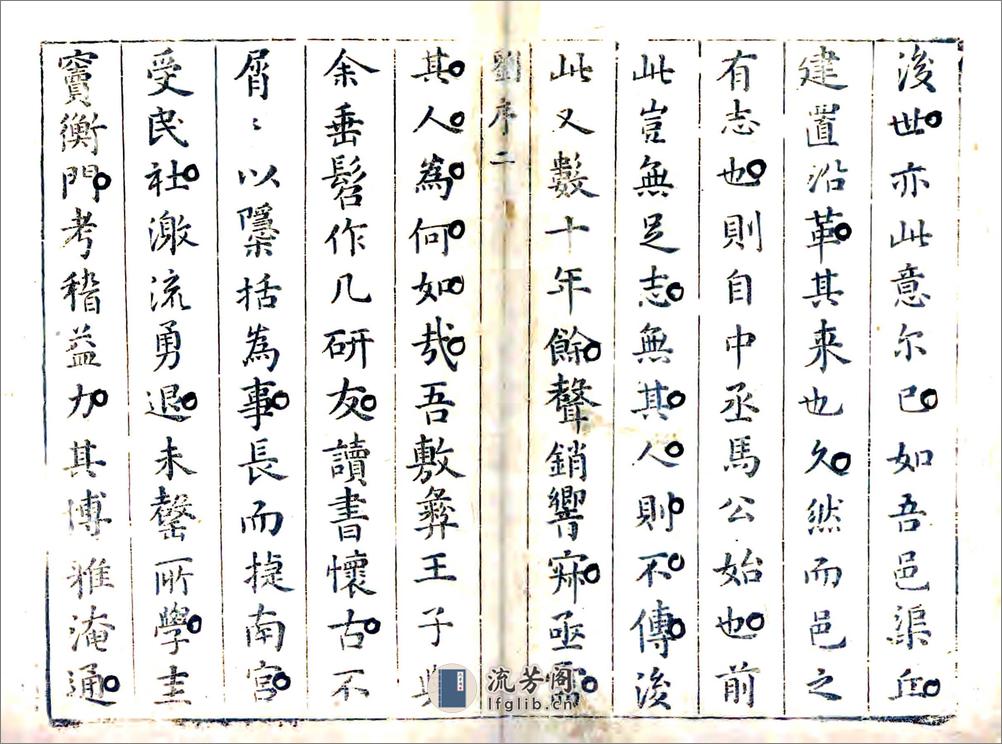 後世亦此意尔已如吾邑渠丘
建置沿革其来也久然而邑之
有志也則自中丞馬公始也前
此豈無足志無其人則不傳後
此又數十年餘聲銷響寂亟
劉序二
其人為何如哉吾敷彝王子與
余垂髫作几研友讀書懷古不
屑〻以隱括為事長而捷南宮
受民社激流勇退未罄所學圭
竇衡門考稽益力其博雅淹通
流芳阁
lfglib.cn